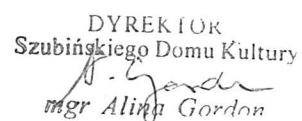 DYREKTOR
Szubińskiego Domu Kultury
A. Gordon
mgr Alina Gordon